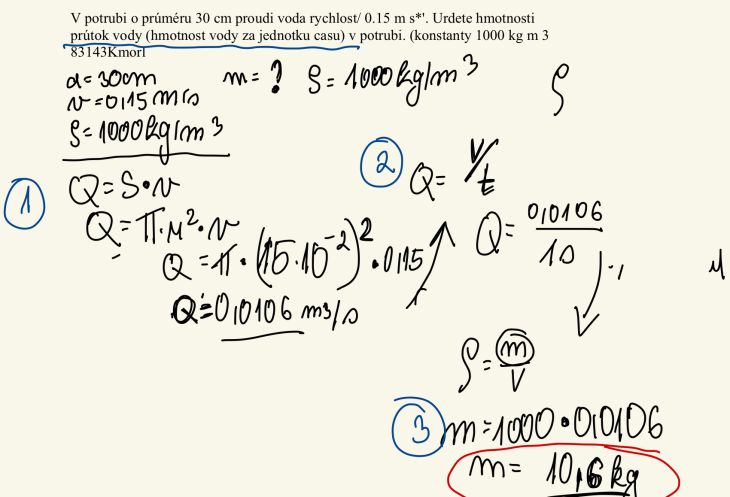 V potrubi o prúméru 30 cm proudi voda rychlost/ 0.15 m s*'. Urdete hmotnosti
prútok vody (hmotnost vody za jednotku casu) v potrubi. (konstanty 1000 kg m 3
83143Kmorl
d=30cm
m=? ρ=1000kg/m³
ρ
v=0,15m/s
ρ=1000kg/m³
1
Q=S·v
Q=π·r²·v
Q=π·(15·10⁻²)²·0,15
Q=0,0106 m3/s
2
Q=V/t
Q=0,0106/1s
ρ=m/V
3
m=1000·0,0106
m=10,6kg